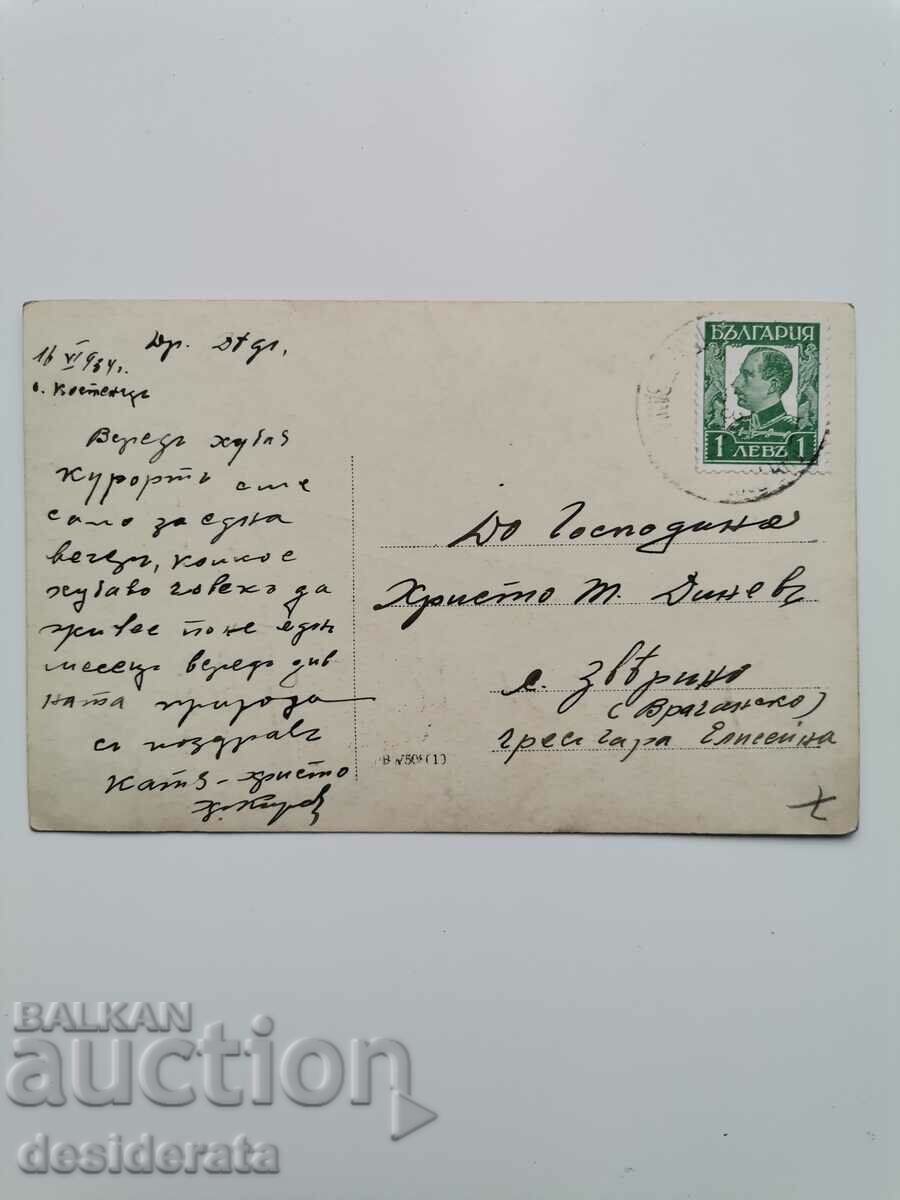 16 VI 934 г.
с. Костенецъ
Др. Дядо,
Вередъ хубавия
Курортъ сме
само за една
вечерь, колко е
хубаво човекъ да
живее поне един
месецъ вередъ див
ната природа
съ поздравъ
Катя - Христо
БЪЛГАРИЯ
1 ЛЕВЪ 1
До Господина
Христо Т. Диневъ
с. Звѣрино
(Врачанско)
презъ гара Елисейна
BALKAN
auction
desiderata